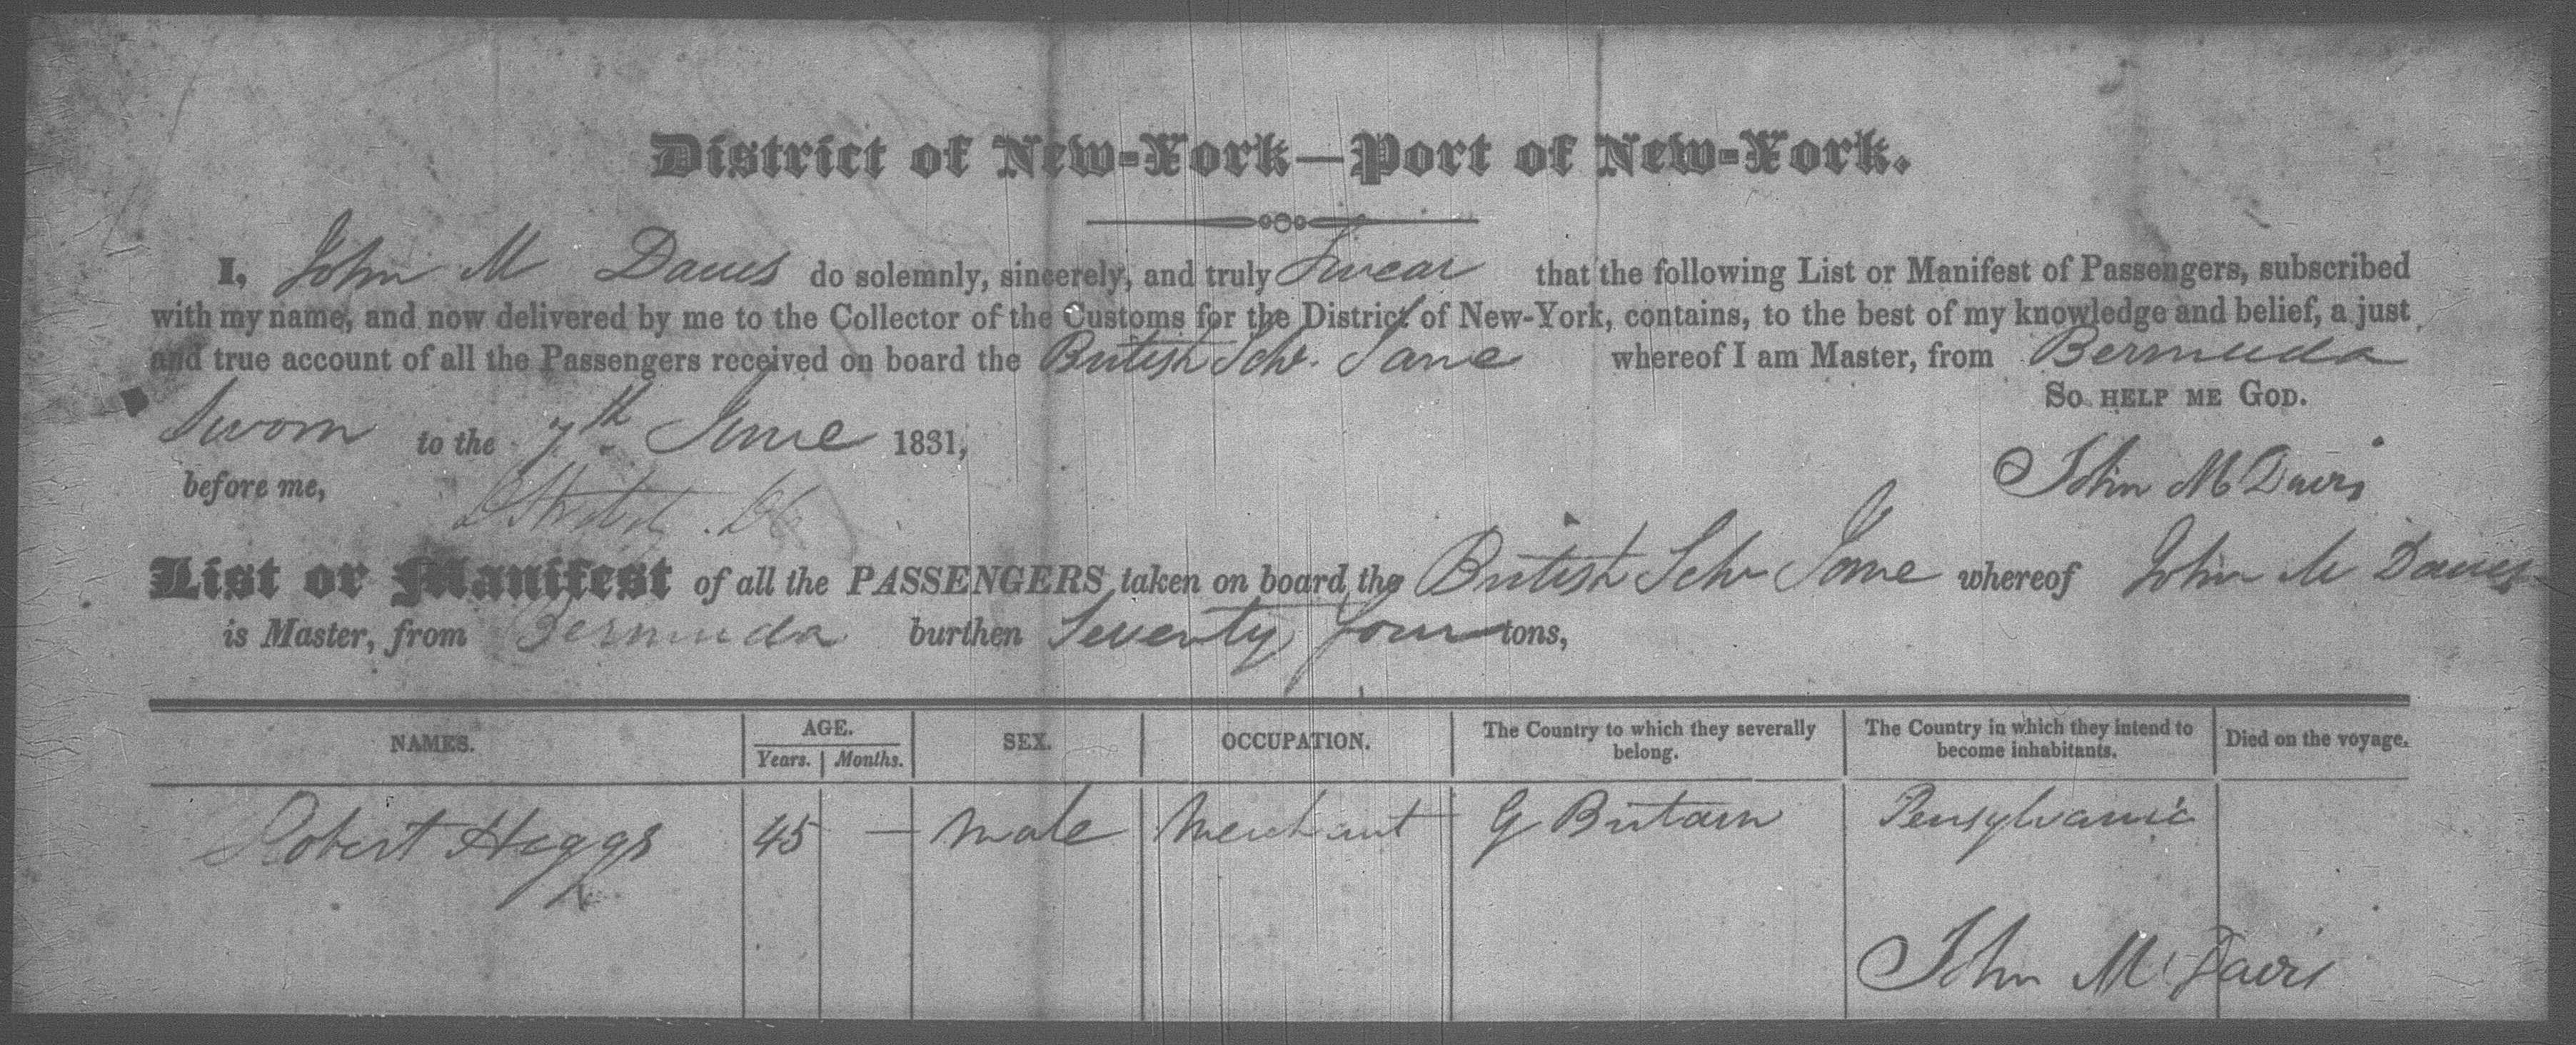 District of New-York—Port of New-York.
I, John M Daves do solemnly, sincerely, and truly Swear that the following List or Manifest of Passengers, subscribed
with my name, and now delivered by me to the Collector of the Customs for the District of New-York, contains, to the best of my knowledge and belief, a just
and true account of all the Passengers received on board the British Schr. Jane whereof I am Master, from Bermuda
So help me God.
Sworn to the 7th June 1831,
John M Davis
before me,
List or Manifest of all the PASSENGERS taken on board the British Schr Jane whereof John M Daves
is Master, from Bermuda burthen Seventy four tons,
NAMES. AGE. Years. Months. SEX. OCCUPATION. The Country to which they severally belong. The Country in which they intend to become inhabitants. Died on the voyage.
Robert Heggs 45 — Male Merchant G Britain Pensylvania
John M Davis